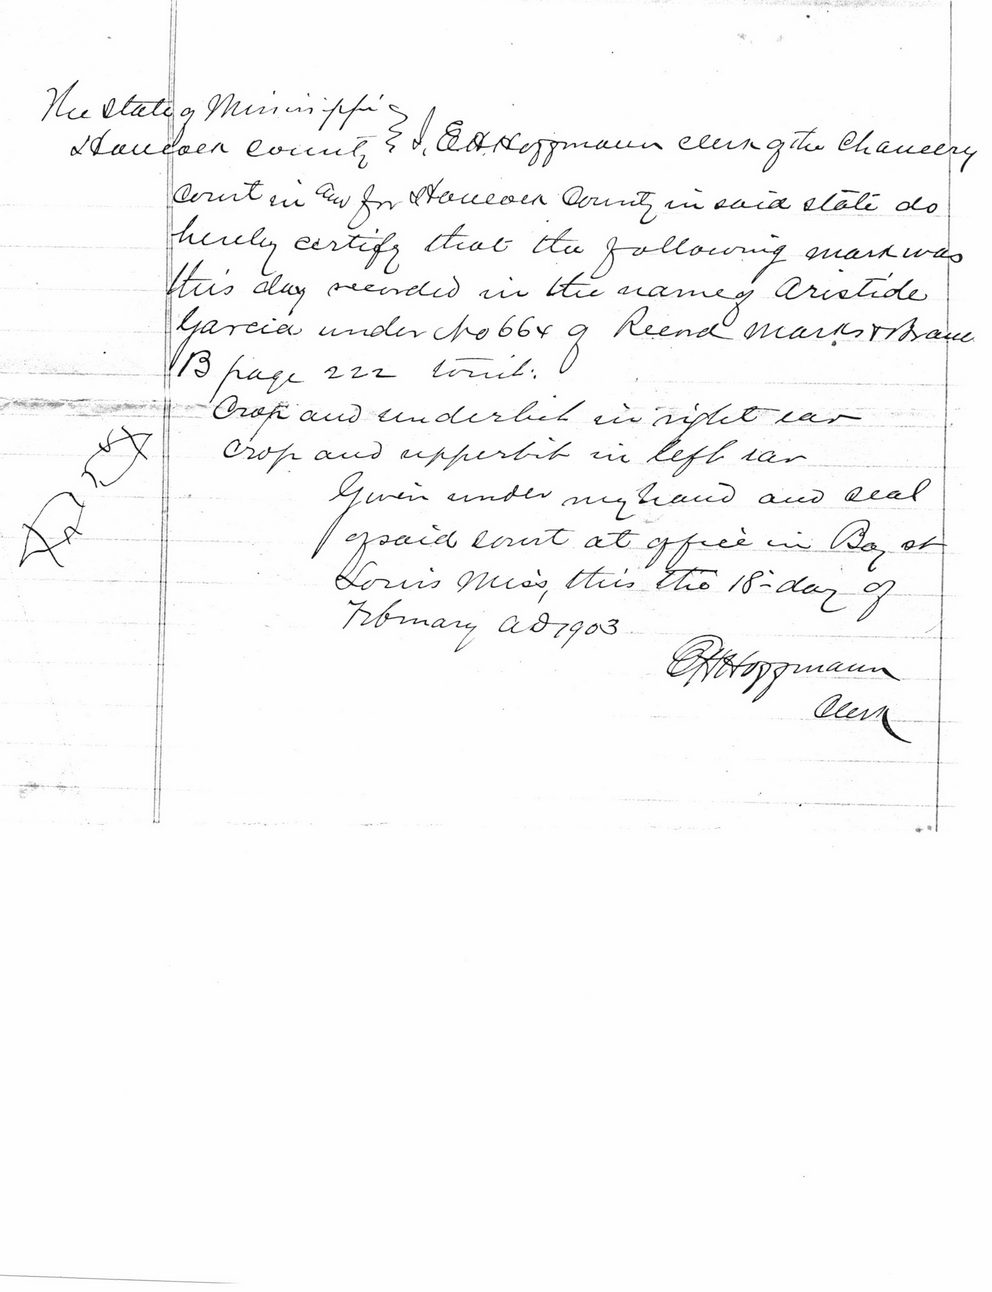 The State of Mississippi
Hancock County } I, E. H. Hoffmann clerk of the Chancery
Court in and for Hancock County in said state do
hereby certify that the following mark was
this day recorded in the name of Aristide
Garcia under No 664 of Record Marks & Bran
B page 222 towit:
Crop and underbit in right ear
Crop and upperbit in left ear
Given under my hand and seal
of said court at office in Bay st
Louis Miss, this the 18- day of
February AD 1903
E H Hoffmann
Clerk